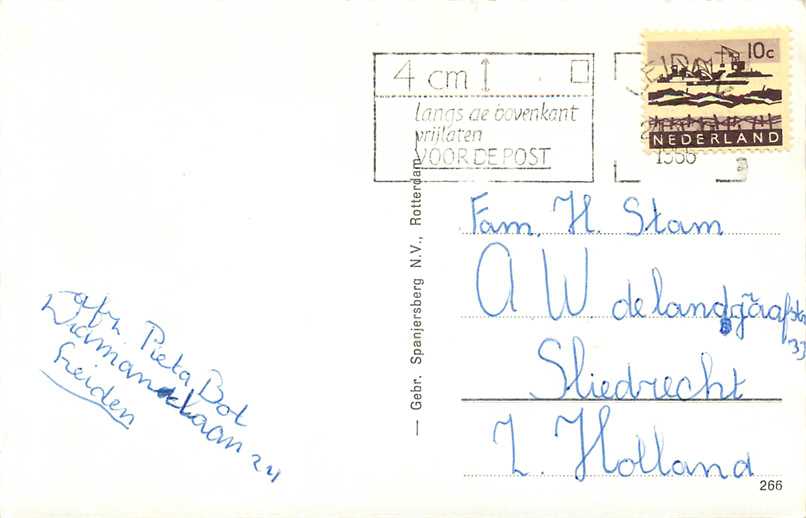 4 cm
langs de bovenkant
vrijlaten
VOOR DE POST
LEIDEN
1966
10c
NEDERLAND
Fam. H. Stam
A W. de landgraafstr
33
Sliedrecht
Z. Holland
afz. Pieta Bot
24
Leiden
— Gebr. Spanjersberg N.V., Rotterdam
266